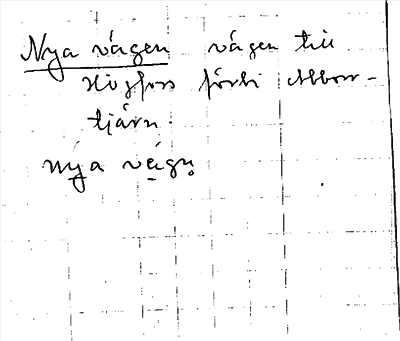 Nya vägen vägen till
Högfors förbi Abborr-
tjärn.
nya vägṇ